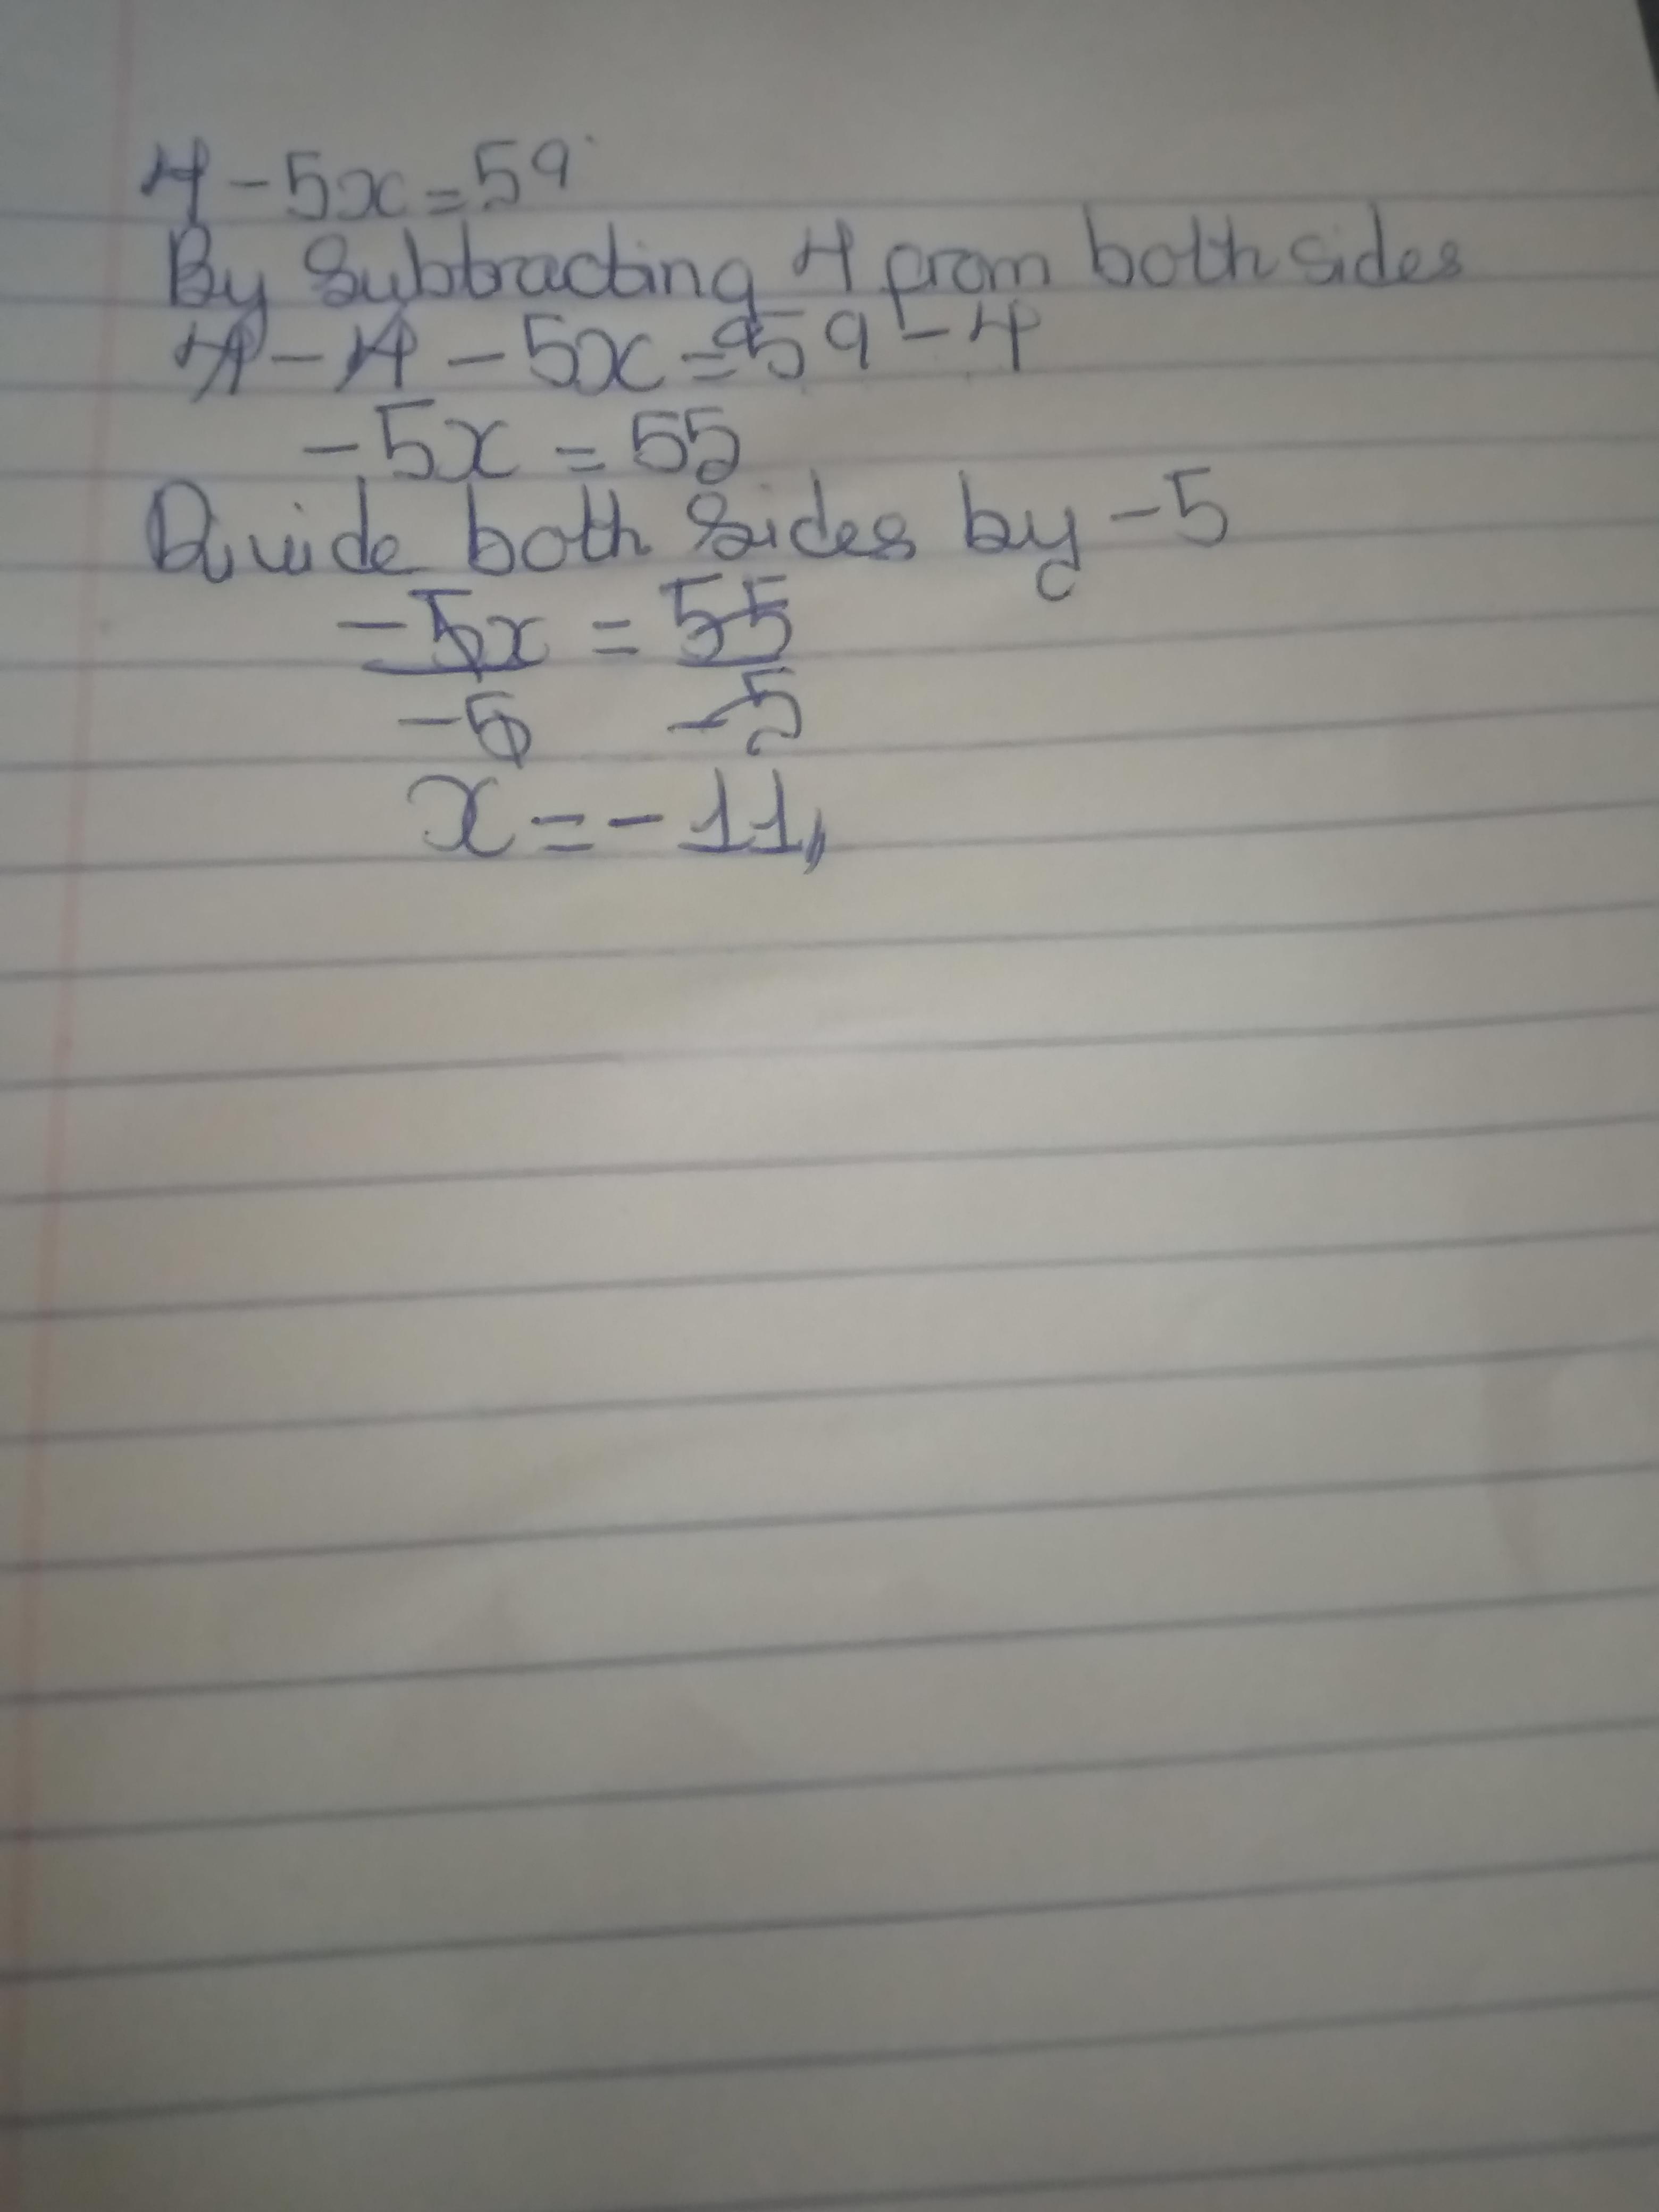 4-5x=59
By Subtracting 4 from both sides
4-4-5x=59-4
-5x=55
Divide both sides by -5
-5x = 55
-5 -5
x=-11,